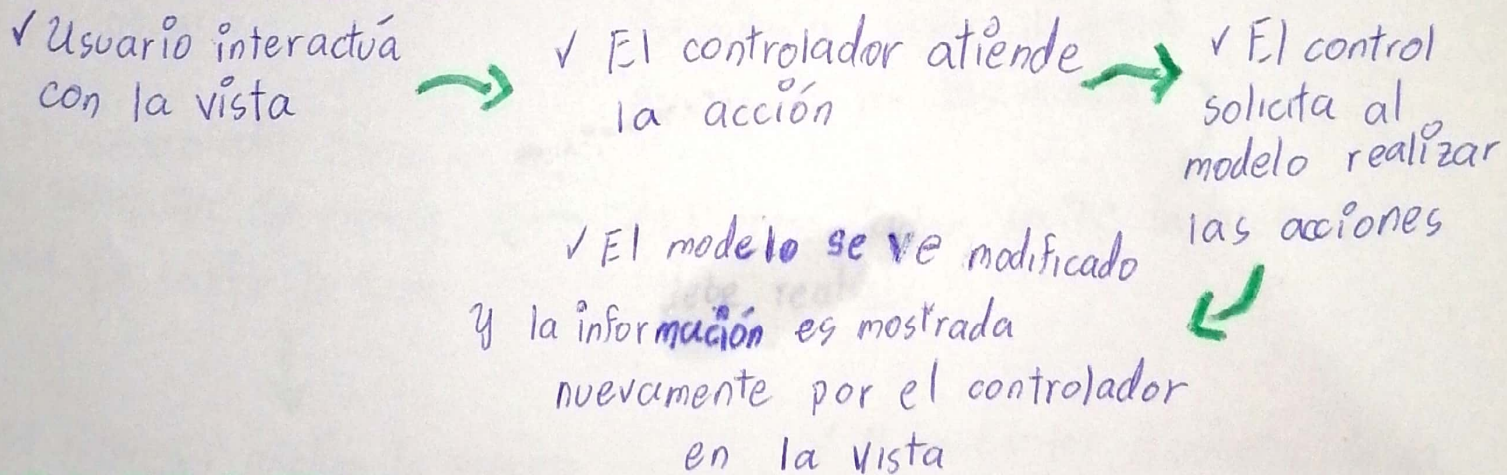 ✓ Usuario interactuá
con la vista
✓ El controlador atiende
la acción
✓ El control
solicita al
modelo realizar
las acciones
✓ El modelo se ve modificado
y la información es mostrada
nuevamente por el controlador
en la vista